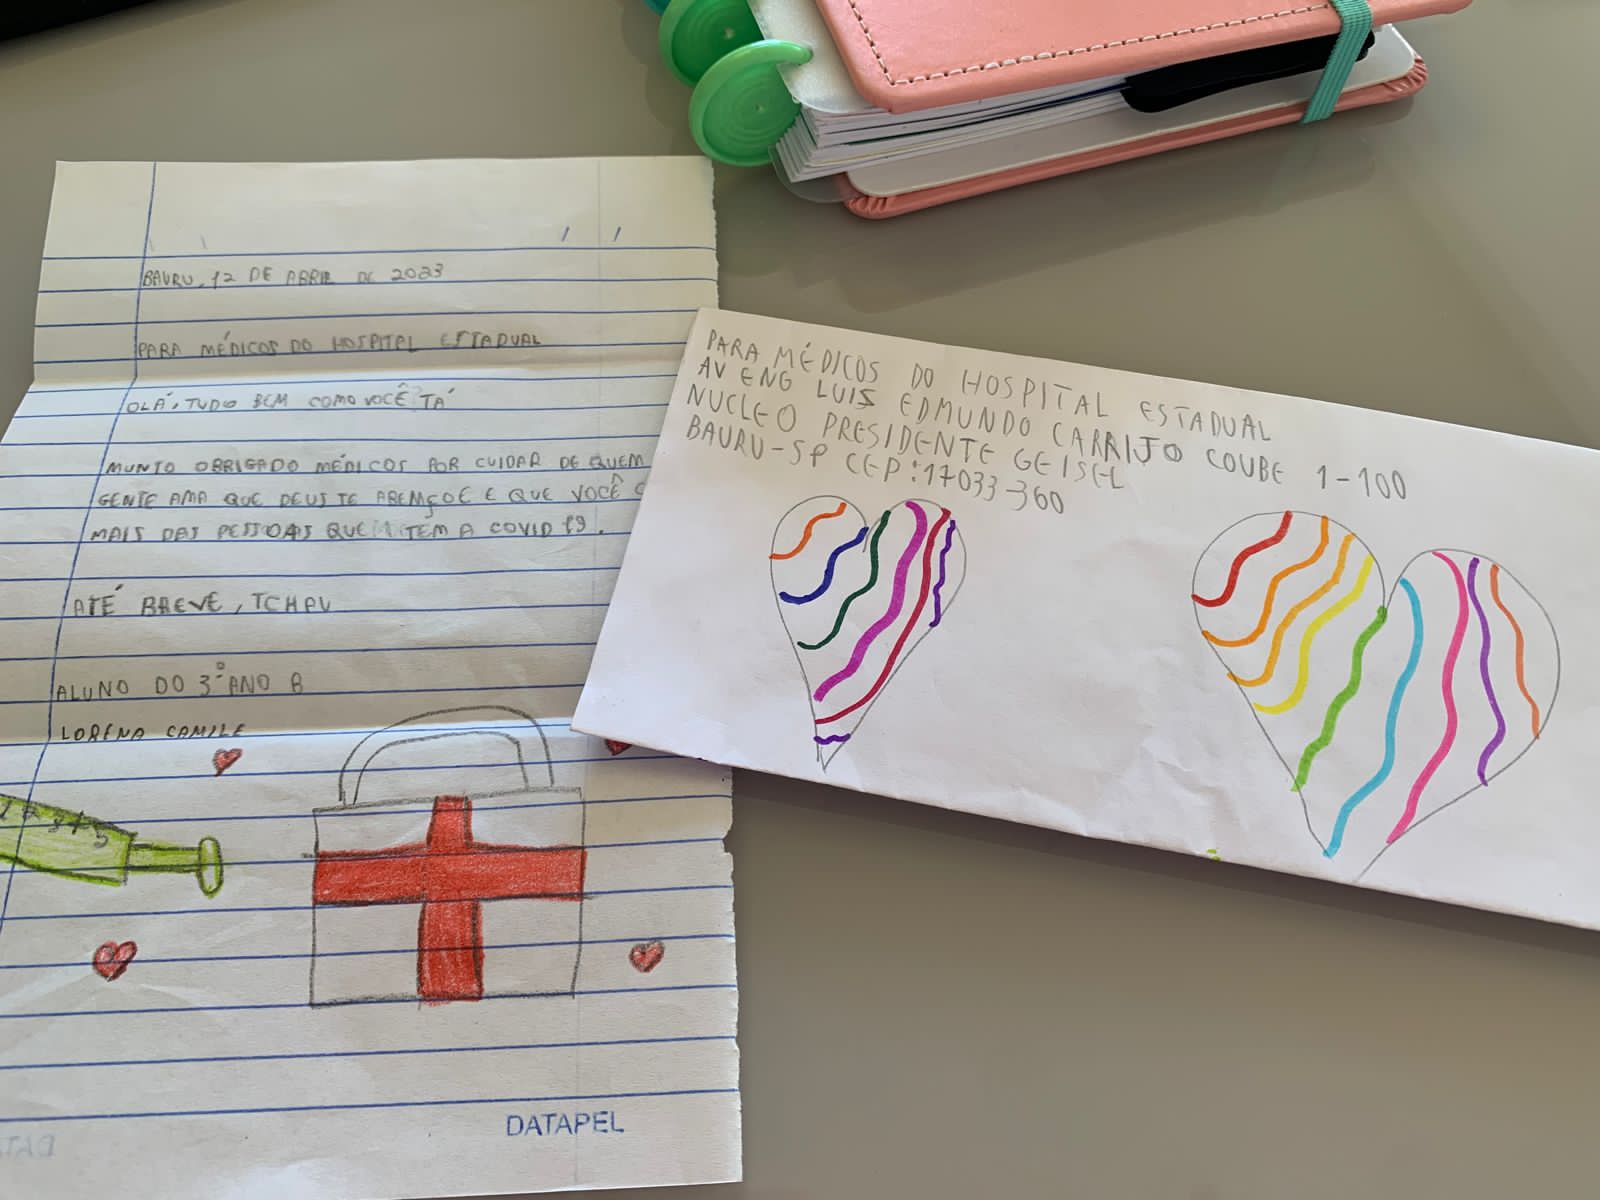 BAURU, 12 DE ABRIL DE 2023
PARA MÉDICOS DO HOSPITAL ESTADUAL
OLÁ, TUDO BEM COMO VOCÊ TÁ
MUNTO OBRIGADO MÉDICOS POR CUIDAR DE QUEM
GENTE AMA QUE DEUS TE ABEMÇOE E QUE VOCÊ C
MAIS DAS PESSOAS QUE TEM A COVID 19.
ATÉ BREVE, TCHAU
ALUNO DO 3° ANO B
LORENA CAMILE
1 2 3 4 5
DATAPEL
PARA MÉDICOS DO HOSPITAL ESTADUAL
AV ENG LUIS EDMUNDO CARRIJO COUBE 1-100
NUCLEO PRESIDENTE GEISEL
BAURU-SP CEP:17033-360